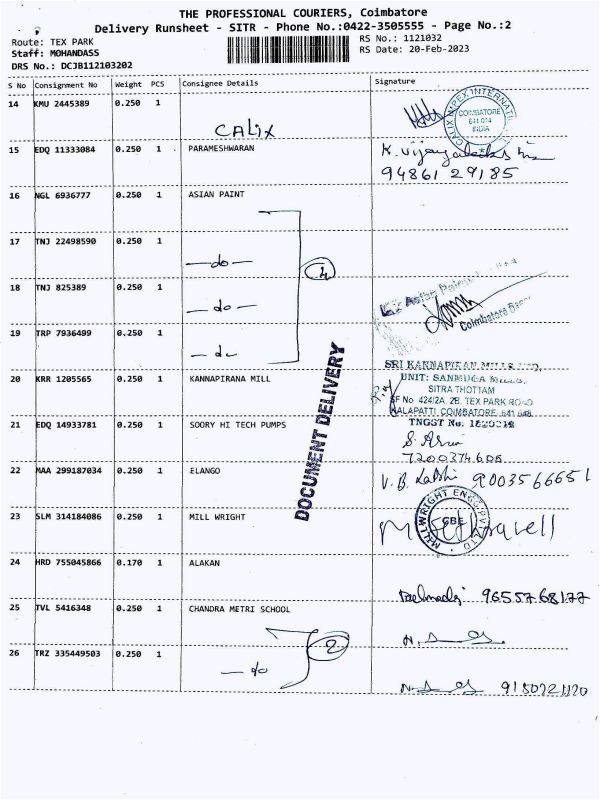 THE PROFESSIONAL COURIERS, Coimbatore
Delivery Runsheet - SITR - Phone No.:0422-3505555 - Page No.:2
Route: TEX PARK
RS No.: 1121032
Staff: MOHANDASS
RS Date: 20-Feb-2023
DRS No.: DCJB112103202
S No Consignment No Weight PCS Consignee Details Signature
14 KMU 2445389 0.250 1
CALIX
CALIX IMPEX INTERNATI
COIMBATORE
641 014
INDIA
15 EDQ 11333084 0.250 1 PARAMESHWARAN
94861 29185
16 NGL 6936777 0.250 1 ASIAN PAINT
17 TNJ 22498590 0.250 1
-do-
4
18 TNJ 825389 0.250 1
-do-
Asian Paint
Coimbatore
19 TRP 7936499 0.250 1
DOCUMENT DELIVERY
SRI KANNAPIRAN MILLS
UNIT: SANMUGA MILLS,
SITRA THOTTAM
SF No. 424/2A, 2B, TEX PARK ROAD
KALAPATTI, COIMBATORE. 641 048
TNGST No.
20 KRR 1205565 0.250 1 KANNAPIRANA MILL
21 EDQ 14933781 0.250 1 SOORY HI TECH PUMPS
7200374605
22 MAA 299187034 0.250 1 ELANGO
9003566651
23 SLM 314184086 0.250 1 MILL WRIGHT
MILLWRIGHT ENGG PVT LTD
CBE
24 HRD 755045866 0.170 1 ALAKAN
9655768177
25 TVL 5416348 0.250 1 CHANDRA METRI SCHOOL
2
26 TRZ 335449503 0.250 1
-do
9150721120